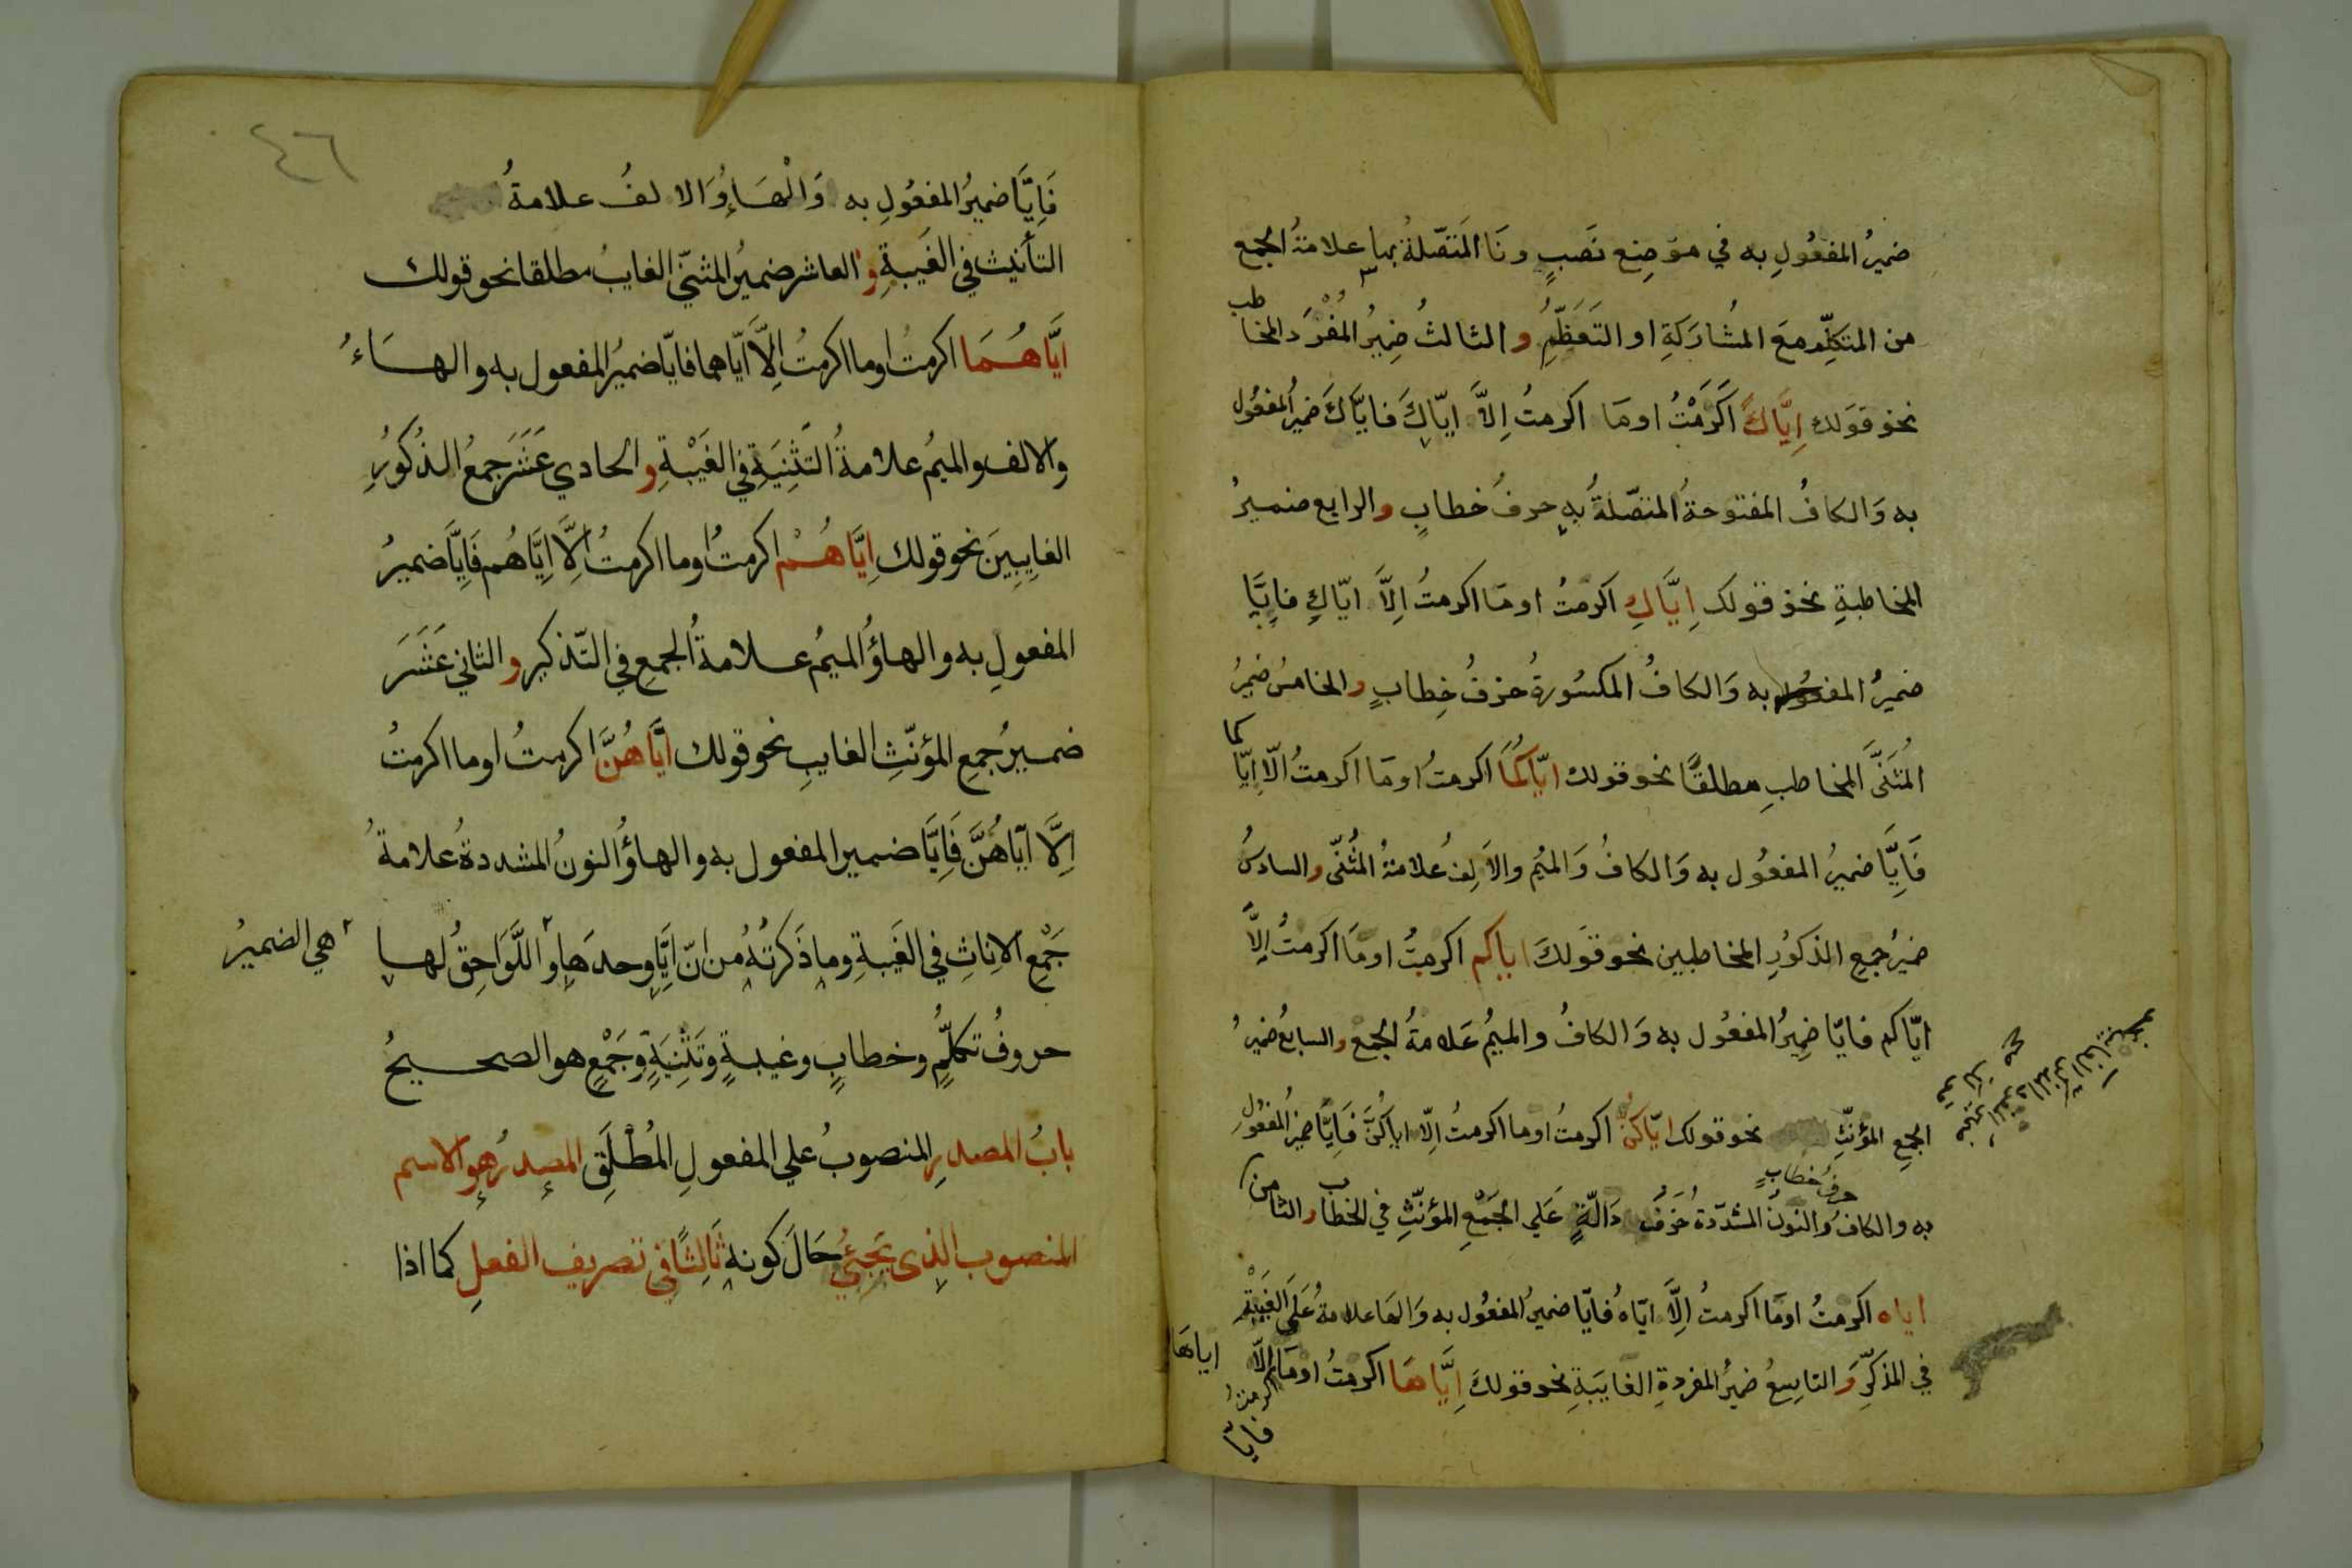 ضميرُ المفعُولِ به في موَضِع نَصبٍ ونَا المتَصّلةُ بها علامَةُ الجمع
من المتكلّمِ معَ المُشارَكةِ او التَعَظّمِ والثالثُ ضميرُ المُفْرَد المخاطب
نحو قوَلك اِيّاكَ اَكرَمْتُ اومَا اكرمتُ اِلاَّ ايّاكَ فايَّاكَ ضميرُ المفعُول
به وَالكافُ المفتوحةُ المتصّلةُ بهِ حرفُ خطابٍ والرابع ضميرُ
المخاطبةِ نحو قولك اِيَّاكِ اكرمتُ اومَا اكرمتُ اِلاَّ ايّاكِ فاِيَّا
ضميرُ المفعُول به وَالكافُ المكسُورةُ حرفُ خِطابٍ والخامسُ ضميرُ
المُثَنَّى المخاطبِ مطلقًا نحو قولك ايّاكُمَا اكرمتُ اومَا اكرمتُ الاّ اِيّاكما
فَاِيَّا ضميرُ المفعُول به وَالكافُ وَالميُم والاَلِفُ علامَةُ المُثَنّى والسادسُ
ضميرُ جمعِ الذكوُرِ المخاطبين نحو قوَلكَ اياكم اكرمتُ اومَا اكرمتُ اِلاَّ
ايّاكم فايّا ضميرُ المفعُول به وَالكافُ والميمُ عَلامَةُ الجمع والسابعُ ضميرُ
الجمعِ المؤنّثِ نحو قولك ايّاكُنّ اكرمتُ اوما اكرمتُ اِلاّ اياكُنَّ فَاِيَّا ضميرُ المفعُولِ
حرفُ خطابٍ
به والكافُ وَالنونُ المشدّدةُ حَرَفُ دَالّةٍ عَلي الجَمْعِ المؤنّثِ في الخطاب والثامن
اياه اكرمتُ اومَا اكرمتُ اِلاَّ ايّاهُ فايّا ضميرُ المفعُول به وَالهَا علامةُ عَلَي الغَيْبَةِ
في المذكّرِ وَالتاسِعُ ضميرُ المفردةِ الغايبَةِ نحو قولكَ اِيَّاهَا اكرمتُ اومَا اكرمتُ اِلاّ اياهَا
فايّا
٤٦
فَاِيَّا ضميرُ المفعُولِ به وَالْهَاءُ وَالالفُ علامةُ
التأنيث في الغَيبةِ والعاشر ضميرُ المثنّي الغايبُ مطلقا نحو قولك
ايَّاهُمَا اكرمتُ اوما اكرمتُ اِلاَّ ايّاهما فايّا ضميرُ المفعول به والهاءُ
والالف والميمُ علامةُ التَثنِيَةِ في الغَيْبةِ والحادي عَشَرَ جمعُ الذُكوُرِ
الغايِبِينَ نحو قولك اِيَّاهُمْ اكرمتُ اوما اكرمتُ اِلاَّ اِيَّاهُم فَاِيَّا ضميرُ
المفعولِ به والهاؤُ الميمُ علامةُ الجمعِ في التّذكيرِ والثاني عَشَرَ
ضميرُ جمعِ المؤنّثِ الغايبِ نحو قولك ايَّاهُنَّ اكرمتُ اوما اكرمتُ
اِلاَّ ايّاهُنَّ فَاِيَّا ضمير المفعول به والهاؤُ النونُ المشددةُ علامةُ
جَمْعِ الاناثِ في الغَيبةِ وما ذَكرتُهُ من انّ اِيَّا وحدهَا واللَّوَاحِقُ لها
هي الضميرُ
حروفُ تكلّمٍ وخطابٍ وغيبةٍ وتَثْنِيَةٍ وجَمْعٍ هو الصحيحُ
بابُ المصدرِ المنصوبُ علي المفعولِ المُطْلَقِ المصدرُ هو الاسم
المنصوب الذي يَجيئُ حَالَ كونه ثَالِثًا في تصريف الفعلِ كما اذا